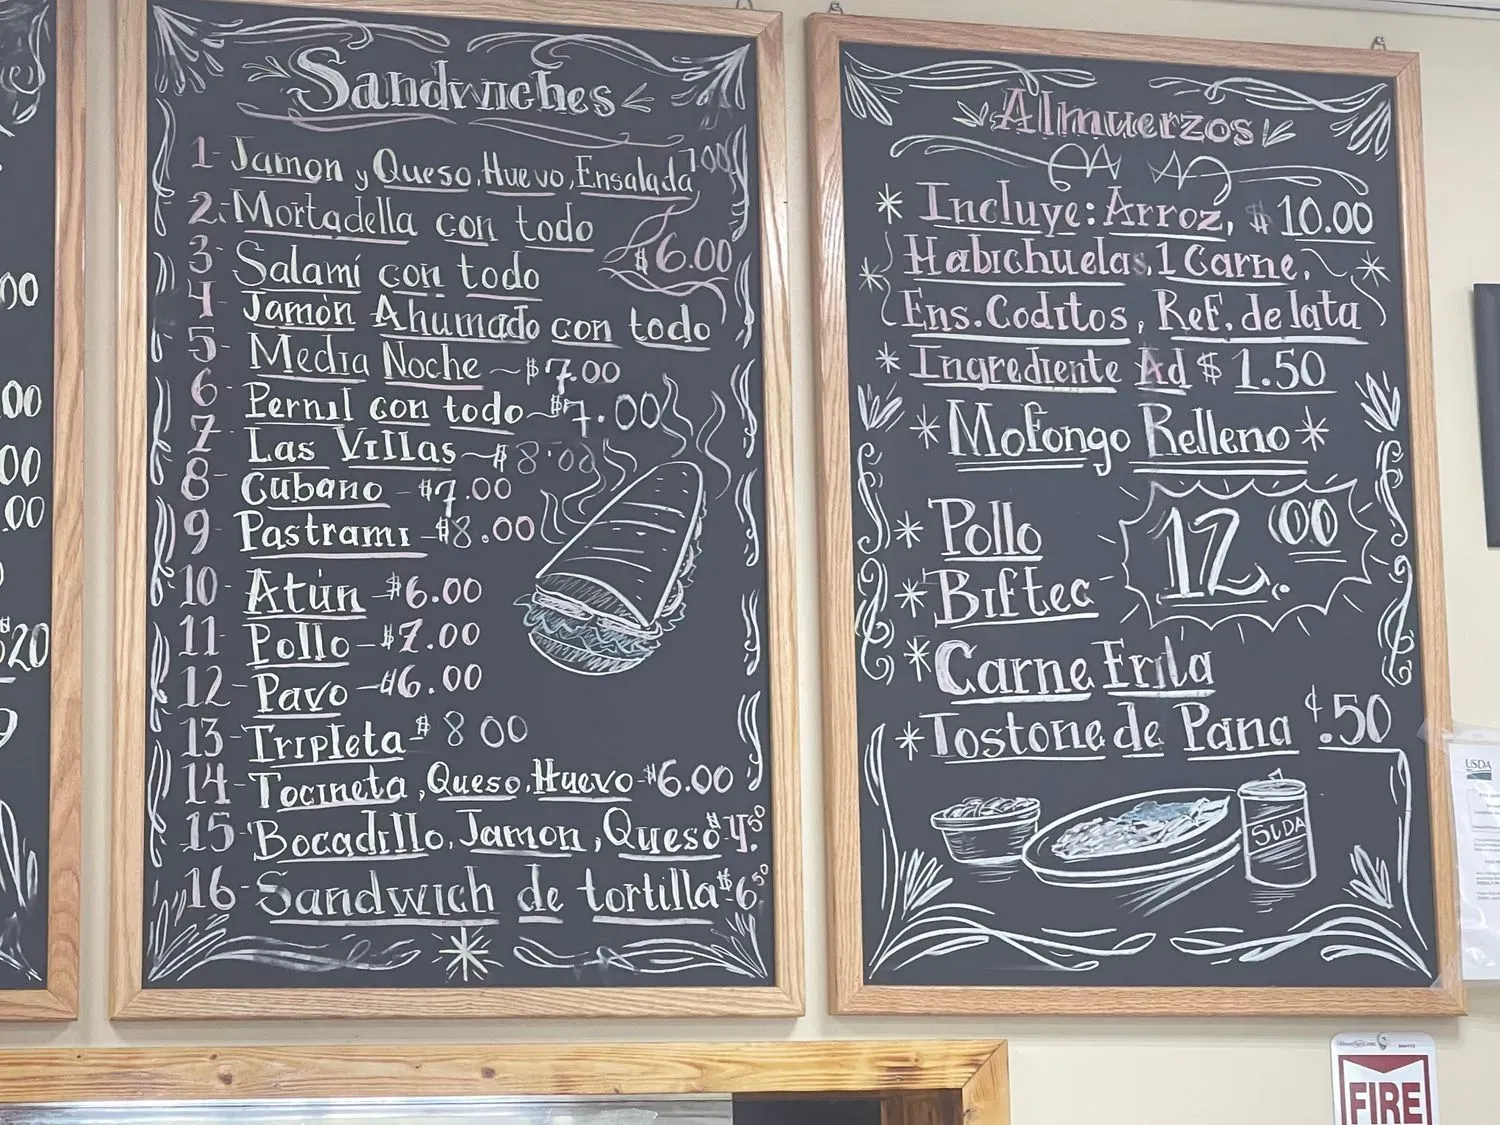 00
.00
00
.00
$20
9
Sandwiches
1- Jamon y Queso, Huevo, Ensalada 7.00
2. Mortadella con todo
$6.00
3- Salamí con todo
4- Jamón Ahumado con todo
5- Media Noche ~ $7.00
6- Pernil con todo ~ $7.00
7- Las Villas ~ $8.00
8- Cubano - $7.00
9- Pastrami - $8.00
10- Atún - $6.00
11- Pollo - $7.00
12- Pavo - $6.00
13- Tripleta $8 00
14- Tocineta, Queso, Huevo - $6.00
15- Bocadillo, Jamon, Queso $4.50
16- Sandwich de tortilla $6.50
Almuerzos
* Incluye: Arroz, $10.00
Habichuelas, 1 Carne,
Ens. Coditos, Ref. de lata
* Ingrediente Ad $1.50
* Mofongo Relleno *
* Pollo
12.00
* Biftec
* Carne Frita
* Tostone de Pana ¢.50
SODA
USDA
FIRE